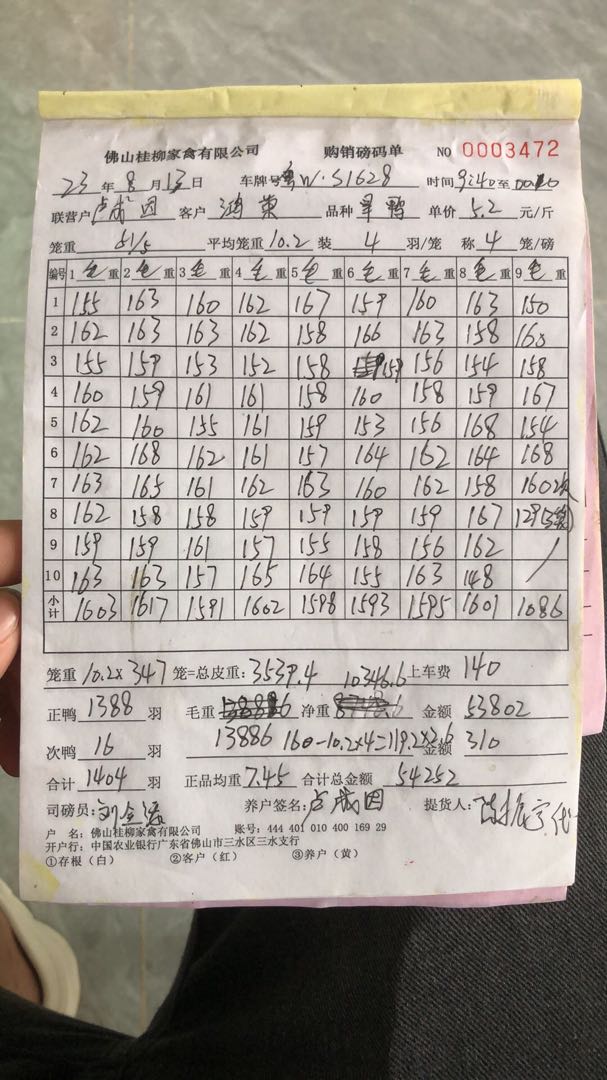 佛山桂柳家禽有限公司 购销磅码单 NO 0003472
23年8月13日 车牌号粤W·S1628 时间9:40至
联营户 卢成因 客户 鸿荣 品种 单价5.2元/斤
笼重 51/5 平均笼重10.2装4羽/笼 称4笼/磅
编号 1毛重 2毛重 3毛重 4毛重 5毛重 6毛重 7毛重 8毛重 9毛重
1 155 163 160 162 167 159 160 163 150
2 162 163 163 162 158 166 163 158 160
3 155 159 153 152 158 159 156 154 158
4 160 159 161 161 158 160 158 159 167
5 162 160 155 161 159 153 156 168 154
6 162 168 162 161 157 164 162 164 168
7 163 165 161 162 163 160 162 158 160 2次
8 162 158 158 159 159 159 159 167 129
9 159 159 161 157 155 158 156 162
10 163 163 157 165 164 155 163 148
小计 1603 1617 1591 1602 1598 1593 1595 1601 1086
笼重 10.2×347笼=总皮重:3539.4 10346.6 上车费 140
正鸭 1388 羽 毛重 净重 金额 53802
次鸭 16 羽 13886 160-10.2×4=119.2×2.6 金额 310
合计 1404 羽 正品均重 7.45 合计总金额 54252
司磅员: 养户签名:卢成因 提货人:
户 名:佛山桂柳家禽有限公司 账号:444 401 010 400 169 29
开户行:中国农业银行广东省佛山市三水区三水支行
①存根(白) ②客户(红) ③养户(黄)